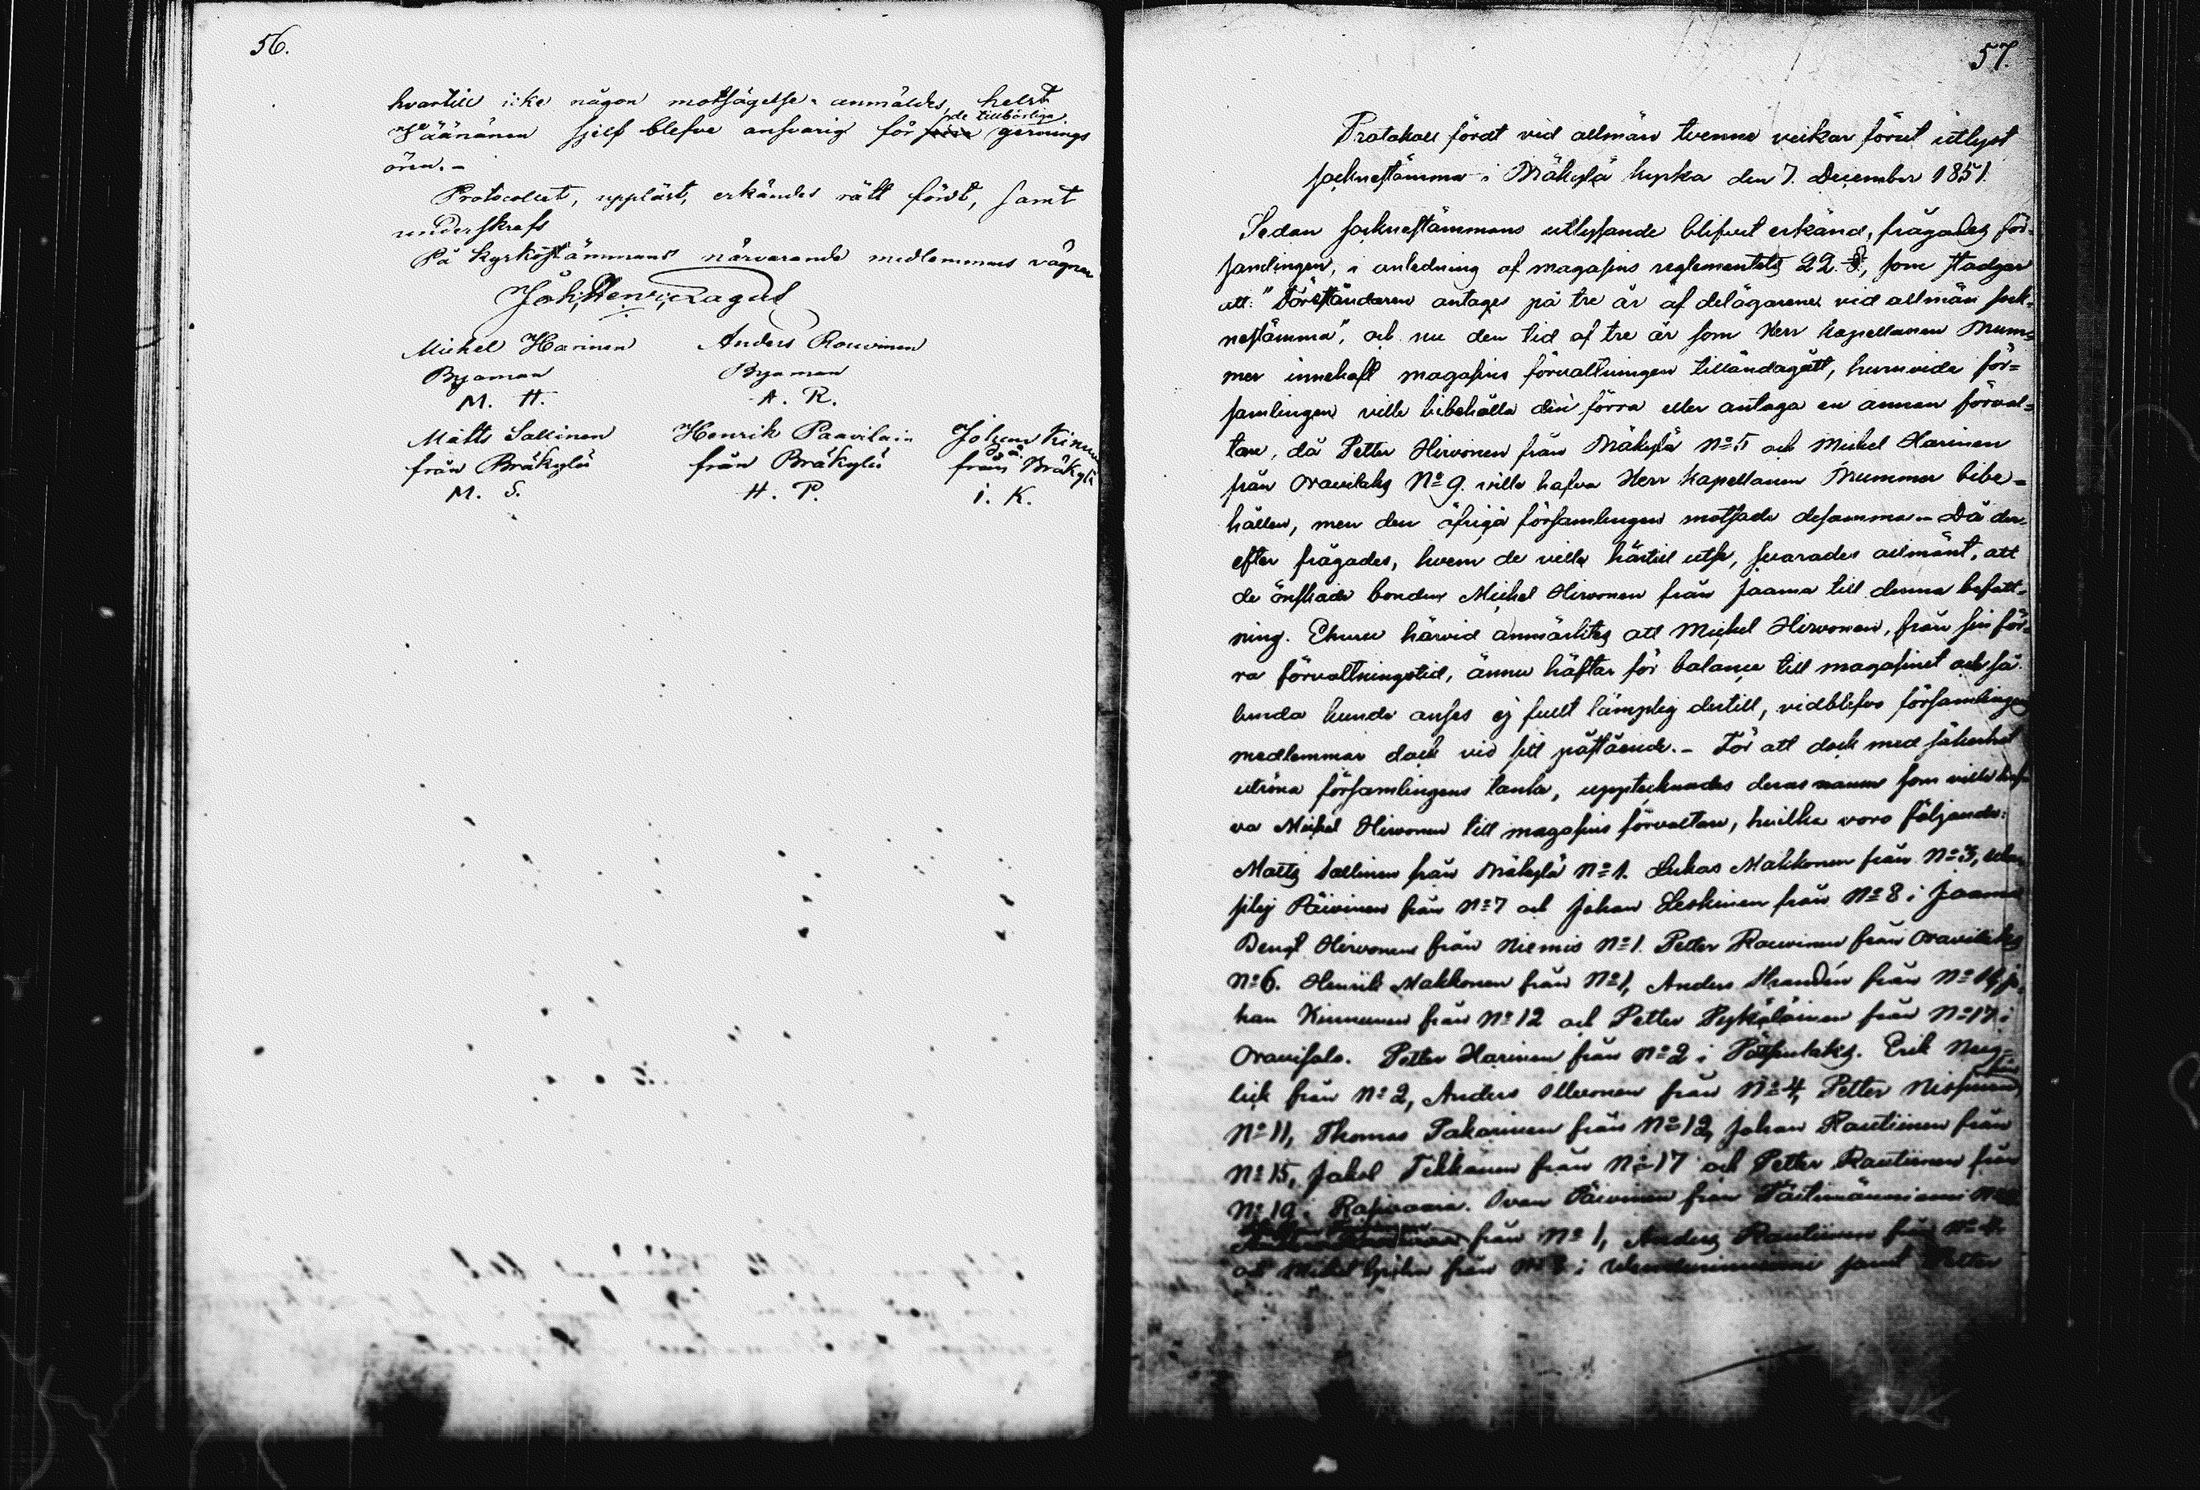 56.
hvartill icke någon motsägelse anmäldes, helst
Wäänänen sjelf blefve ansvarig för de tillbörliga gernings
ören.-
Protocollet, uppläst, erkändes rätt fördt, samt
underskrefs
På Kyrkostämmans närvarande medlemmars vägnar
Joh: Henr: Lagus
Michel Harinen Anders Rouvinen
Byaman Byaman
M. H. A. R.
Matts Sallinen Henrik Paavilain Johan Kinnu
från Bräkylä från Bräkylä från Bräkylä
M. S. H. P. i. K.
57.
Protokoll fördt vid allmän tvenne veckor förut utlyst
socknestämma i Bräkylä kyrka den 7. December 1851.
Sedan socknestämmans utlysande blifvit erkänd, frågades för-
samlingen, i anledning af magasins reglementets 22. §, som stadgar
att: "Föreståndaren antages på tre år af delägarene vid allmän sock-
nestämma", och nu den tid af tre år som Herr kapellanen Mum-
mer innehaft magasins förvaltningen tilländagått, huruvida för-
samlingen ville bibehålla den förra eller antaga en annan förval-
tare, då Petter Hirvonen från Bräkylä No 5 och Michel Harinen
från Oravilaks No 9. ville hafva Herr kapellanen Mummer bibe-
hållen, men den öfriga församlingen motsade detsamma.- Då der-
efter frågades, hvem de ville härtill utse, svarades allmänt, att
de önskade bonden Michel Hirvonen från Jaama till denna befatt-
ning. Ehuru härvid anmärktes att Michel Hirvonen, från sin för-
ra förvaltningstid, ännu häftar för balance till magasinet och så-
lunda kunde anses ej fullt lämplig dertill, vidblefvo församlingens
medlemmar dock vid sitt påstående.- För att dock med säkerhet
utröna församlingens tanke, upptecknades deras namn som ville haf-
va Michel Hirvonen till magasins förvaltare, hvilka voro följande:
Matts Sallinen från Bräkylä No 1. Lukas Makkonen från No 3,
Päivinen från No 7 och Johan Leskinen från No 8 i Jaama
Bengt Hirvonen från Niemis No 1. Petter Rouvinen från Oravilaks
No 6. Henrik Makkonen från No 1, Anders Strandén från No 11, Jo-
han Kinnunen från No 12 och Petter Pykäläinen från No 17 i
Oravisalo. Petter Harinen från No 2 i Pötsönlaks. Erik Neig-
lick från No 2, Anders Illvonen från No 4, Petter Nissinen
No 11, Thomas Pakarinen från No 12, Johan Rautiinen från
No 15, Jakob Tikkanen från No 17 och Petter Rautiinen från
No 19 i Rasivaara. Ivan Päivinen från
från No 1, Anders Rautiinen från No 4
och Michel från No 8 i samt Petter